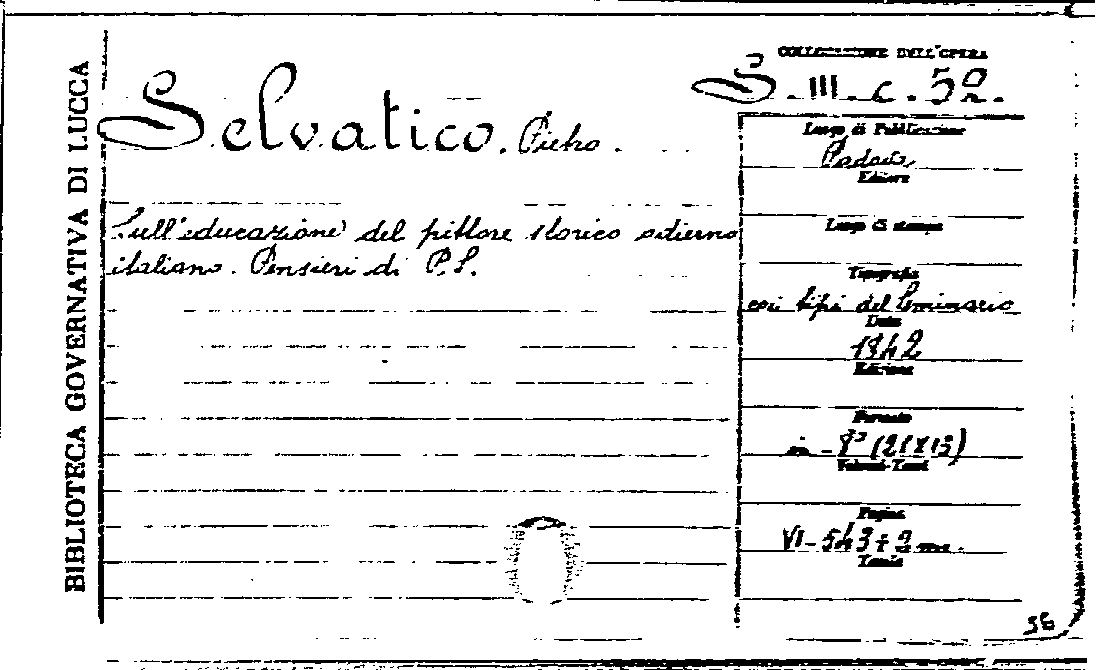 BIBLIOTECA GOVERNATIVA DI LUCCA
Selvatico. Pietro.
Sull'educazione del pittore storico odierno
italiano. Pensieri di P. S.
COLLOCAZIONE DELL'OPERA
S. III. c. 52.
Luogo di Pubblicazione
Padova
Editore
Luogo di stampa
Tipografia
coi tipi del Seminario
Data
1842
Edizione
Formato
in-8° (21X13)
Volumi-Tomi
Pagine
VI-543+
Tavole
36